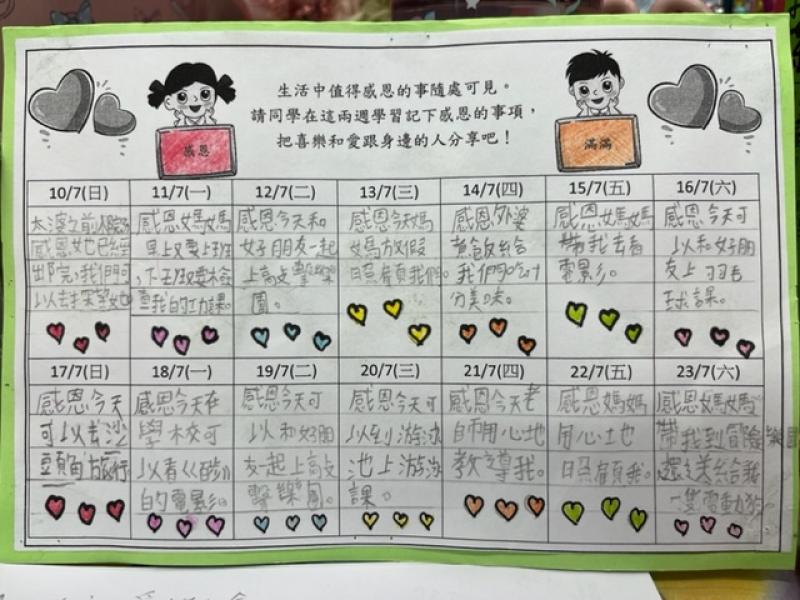 生活中值得感恩的事隨處可見。
請同學在這兩週學習記下感恩的事項，
把喜樂和愛跟身邊的人分享吧！
感恩
滿滿
10/7(日)
11/7(一)
12/7(二)
13/7(三)
14/7(四)
15/7(五)
16/7(六)
太婆之前入院
感恩她已經
出院，我們可
以去探望她
感恩媽媽
早上又要上班
，下班又要檢
查我的功課。
感恩今天和
女子朋友一起
上高文擊樂
團。
感恩今天媽
媽放假
照顧我們。
感恩外婆
煮飯給
我們吃，十
分美味。
感恩媽媽
帶我去看
電影。
感恩今天可
以和好朋
友上羽毛
球課。
17/7(日)
18/7(一)
19/7(二)
20/7(三)
21/7(四)
22/7(五)
23/7(六)
感恩今天
可以去沙
頭角旅行
感恩今天在
學校可
以看
的電影
感恩今天可
以和好朋
友一起上高文
擊樂團。
感恩今天可
以到游泳
池上游泳
課。
感恩今天老
師用心地
教導我。
感恩媽媽
用心地
照顧我。
感恩媽媽
帶我到冒險樂園
還送給我
一隻電動狗